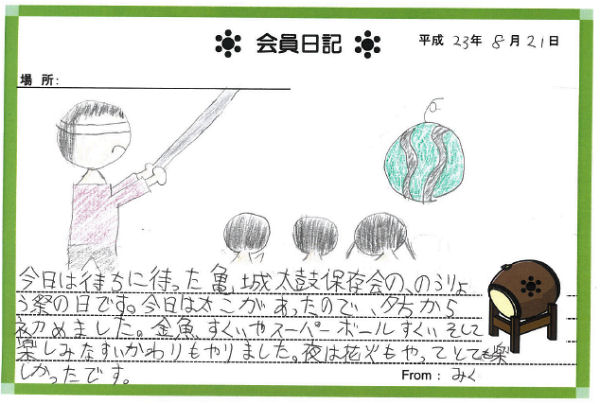 会員日記
平成 23年 8月21日
場 所:
今日は待ちに待った亀城太鼓保存会の、のうりょ
う祭の日です。今日は太こがあったので、夕方から
初めました。金魚すくいやスーパーボールすくいそして
楽しみなすいかわりもやりました。夜は花火もやってとても楽
しかったです。
From: みく